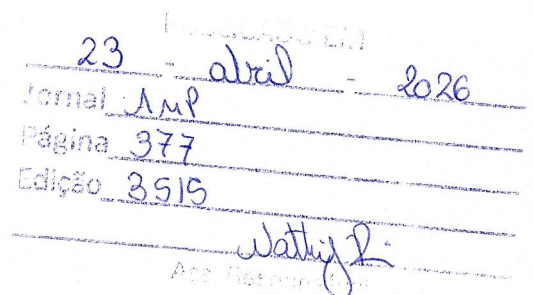 23 - abril - 2026
Jornal AMP
Página 377
Edição 3515